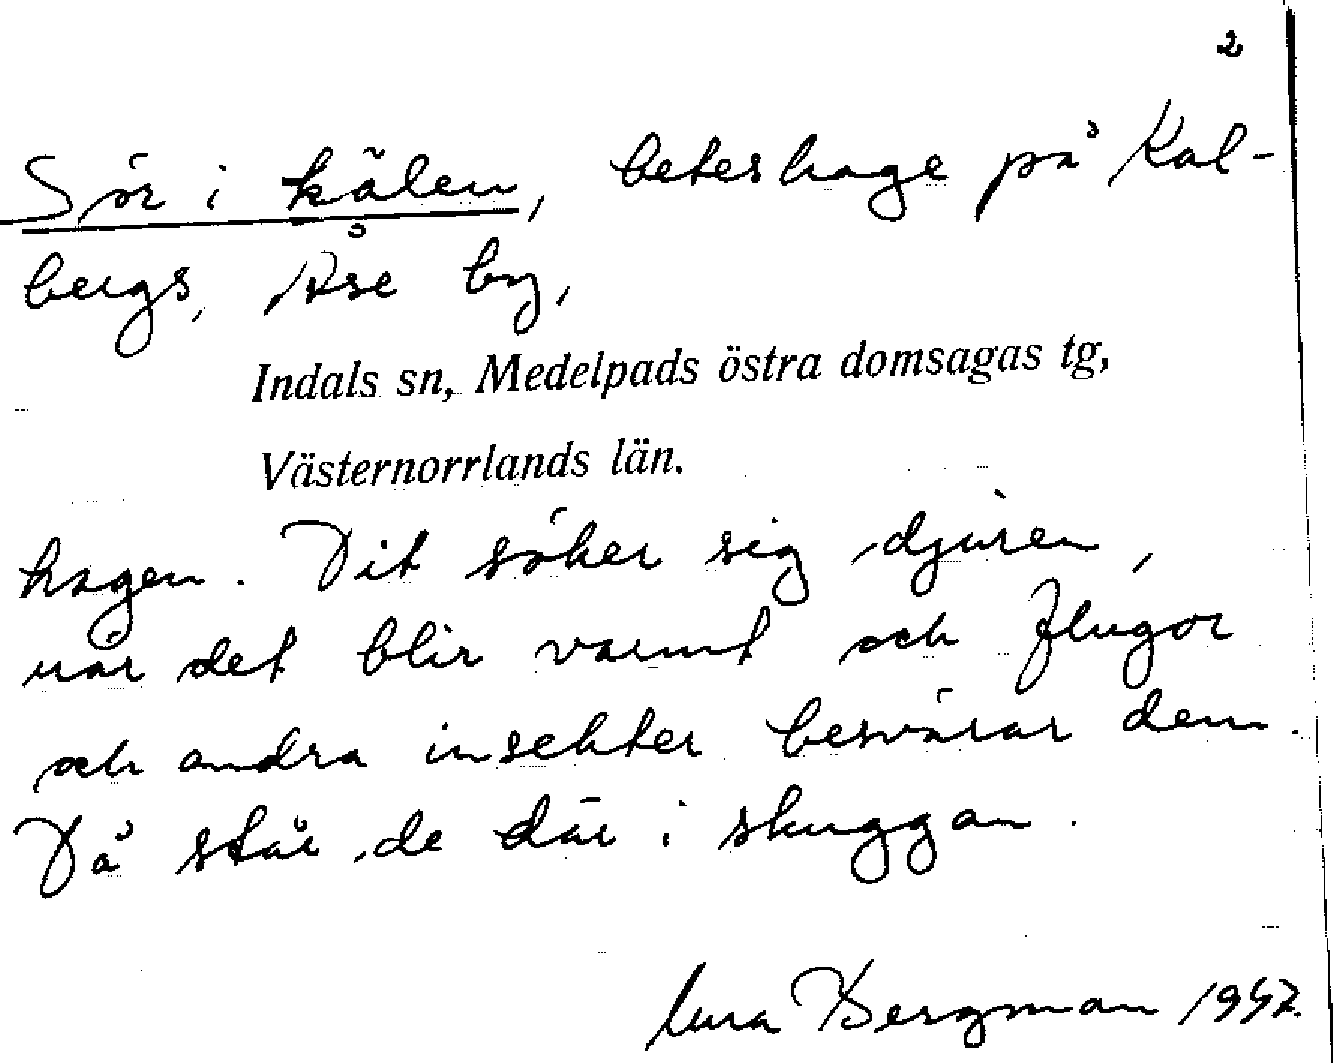 2
Sör i kälen, beteshage på Kal-
bergs, Åse by,
Indals sn, Medelpads östra domsagas tg,
Västernorrlands län.
hagen. Dit söker sig djuren,
när det blir varmt och flugor
och andra insekter besvärar dem.
Då står de där i skuggan.
Bergman